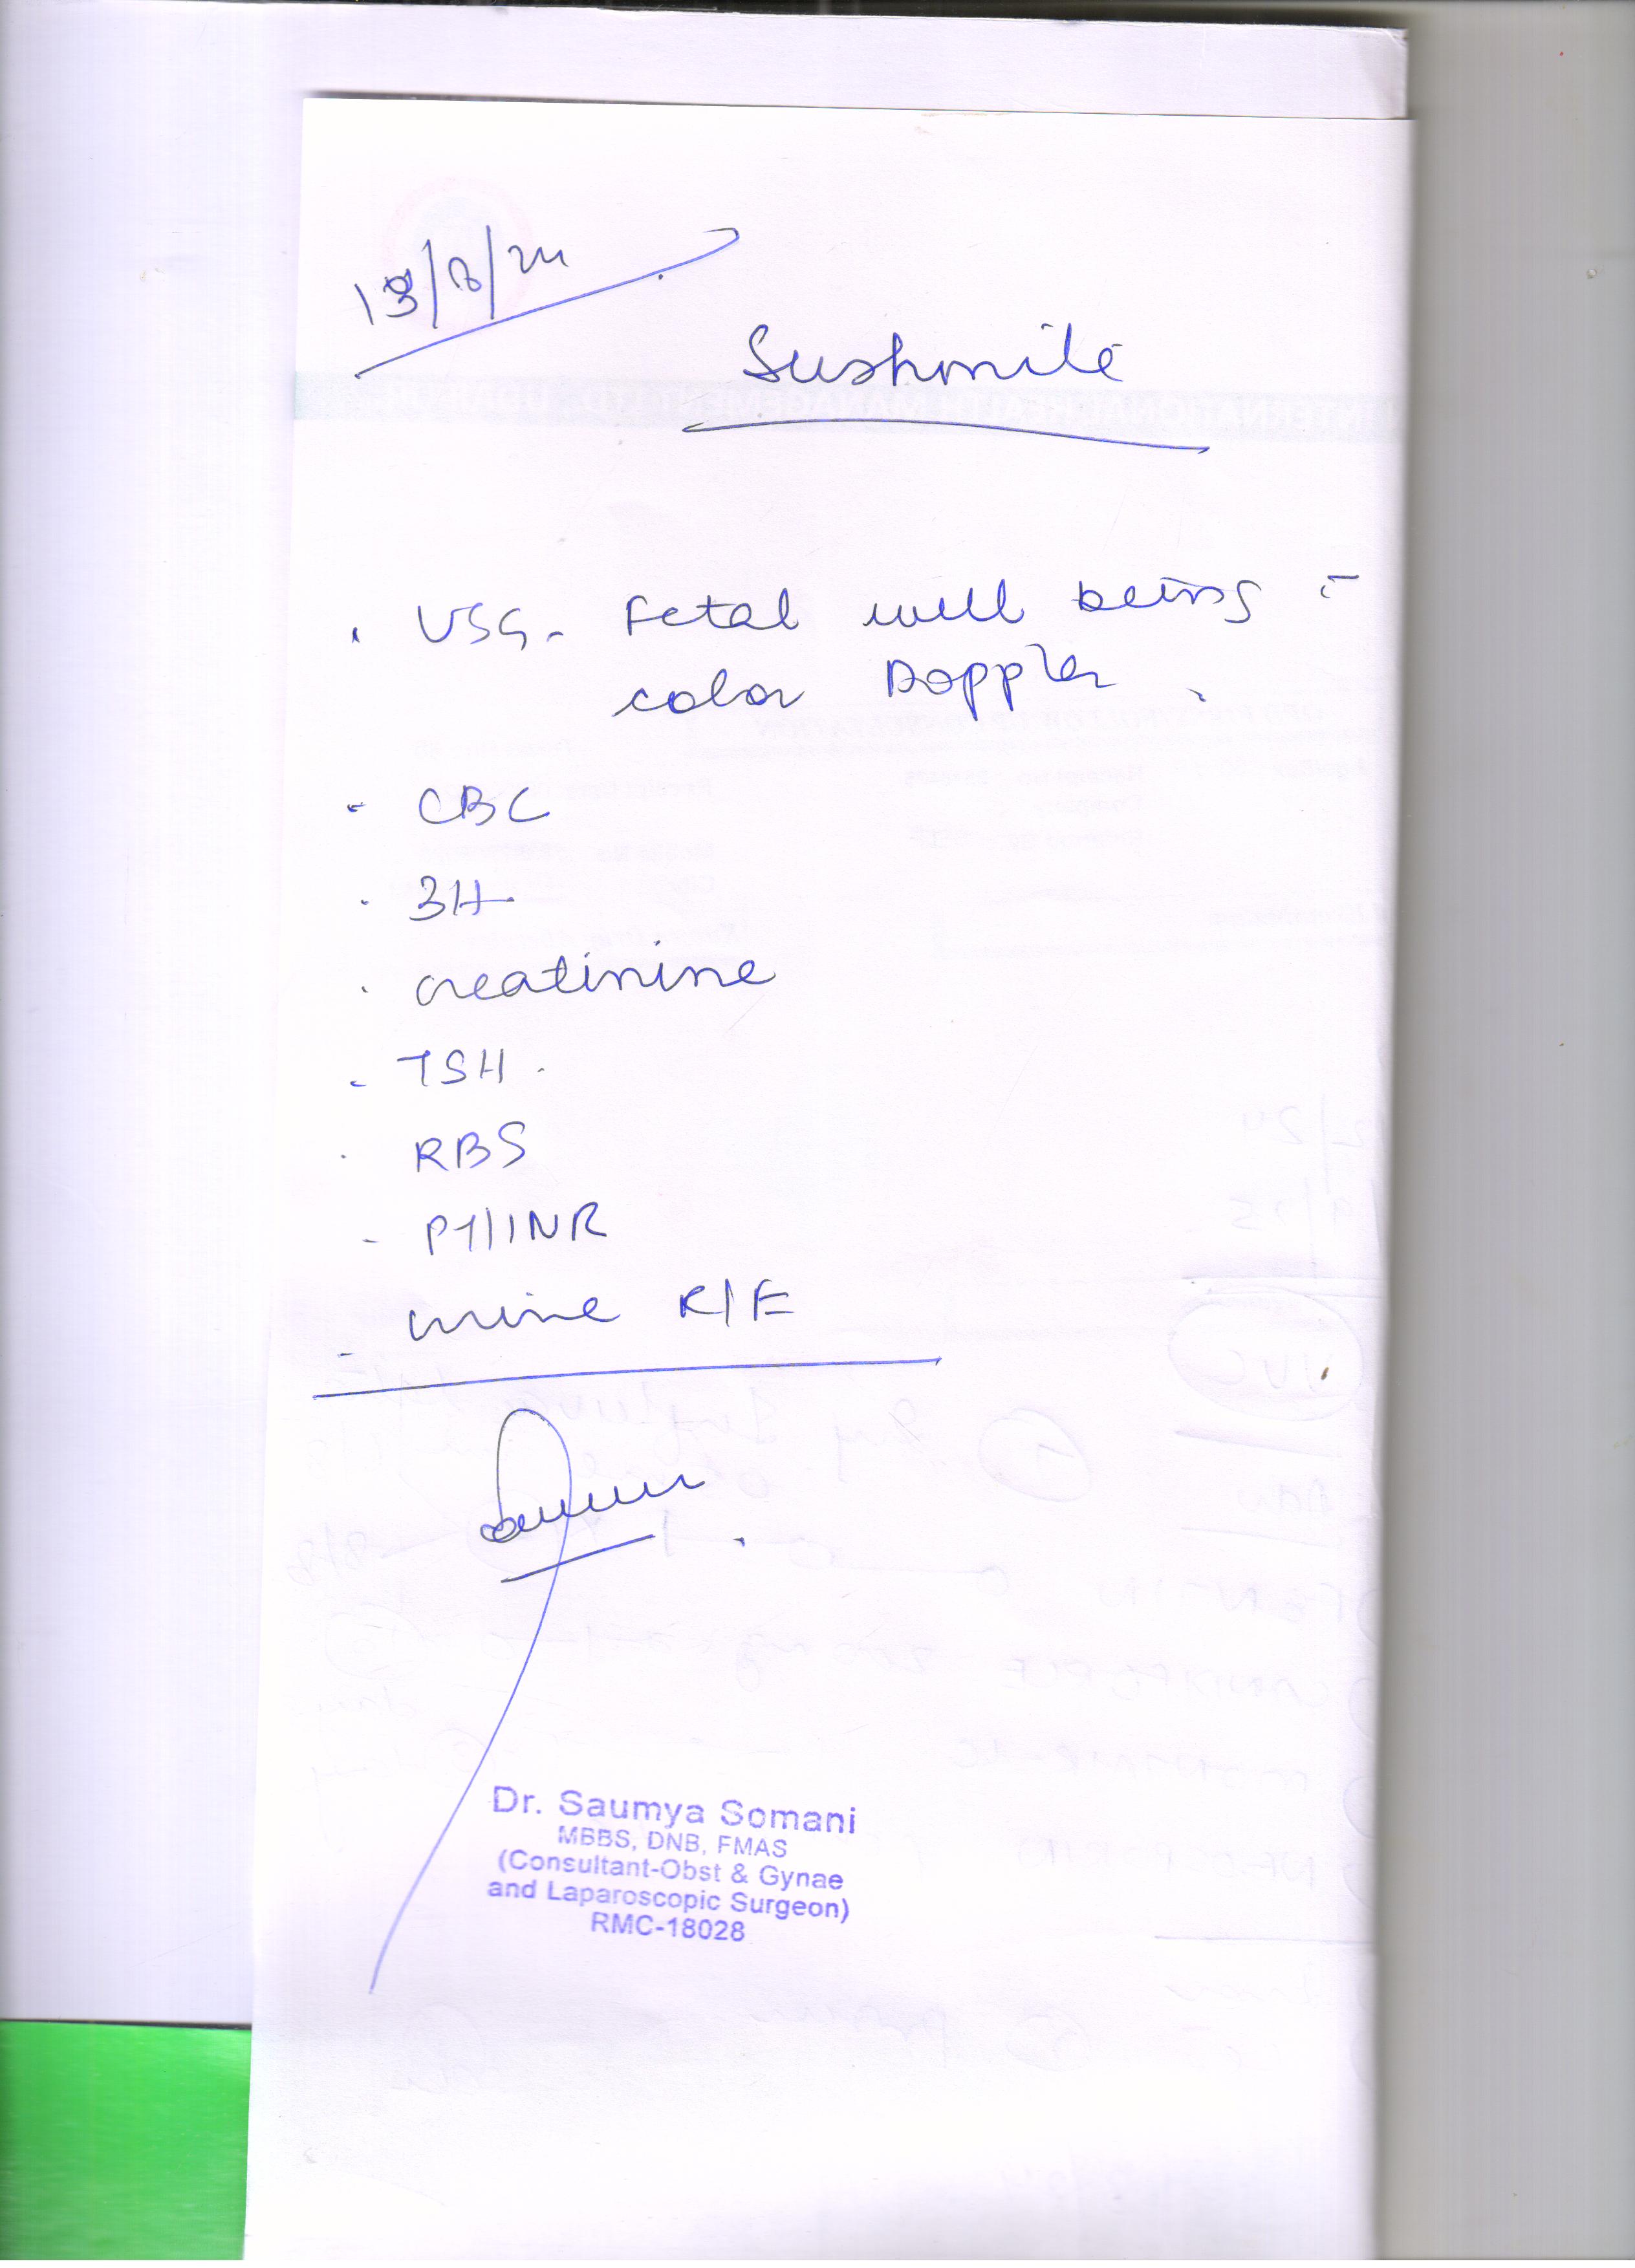 18/8/24
Sushmita
. USG - Fetal well being c̄
color Doppler .
- CBC
. 3H
. creatinine
- TSH .
. RBS
- PT/INR
- urine R/E
Dr. Saumya Somani
MBBS, DNB, FMAS
(Consultant-Obst & Gynae
and Laparoscopic Surgeon)
RMC-18028